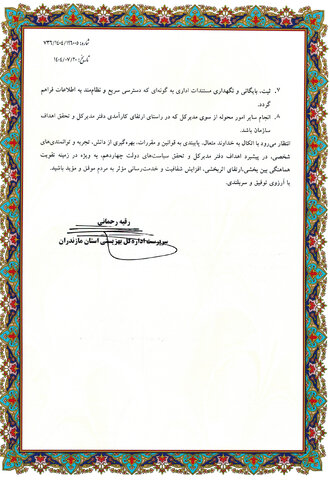 شماره: ۷۳۶/۱۴۰۴/۱۲۶۰۰۵
تاریخ: ۱۴۰۴/۰۷/۲۰
۷. ثبت، بایگانی و نگهداری مستندات اداری به گونه‌ای که دسترسی سریع و نظام‌مند به اطلاعات فراهم
گردد.
۸. انجام سایر امور محوله از سوی مدیرکل که در راستای ارتقای کارآمدی دفتر مدیرکل و تحقق اهداف
سازمان باشد.
انتظار می‌رود با اتکال به خداوند متعال، پایبندی به قوانین و مقررات، بهره‌گیری از دانش، تجربه و توانمندی‌های
شخصی، در پیشبرد اهداف دفتر مدیرکل و تحقق سیاست‌های دولت چهاردهم، به ویژه در زمینه تقویت
هماهنگی بین بخشی، ارتقای اثربخشی، افزایش شفافیت و خدمت‌رسانی مؤثر به مردم موفق و مؤید باشید.
با آرزوی توفیق و سربلندی.
رقیه رحمانی
سرپرست اداره‌کل بهزیستی استان مازندران